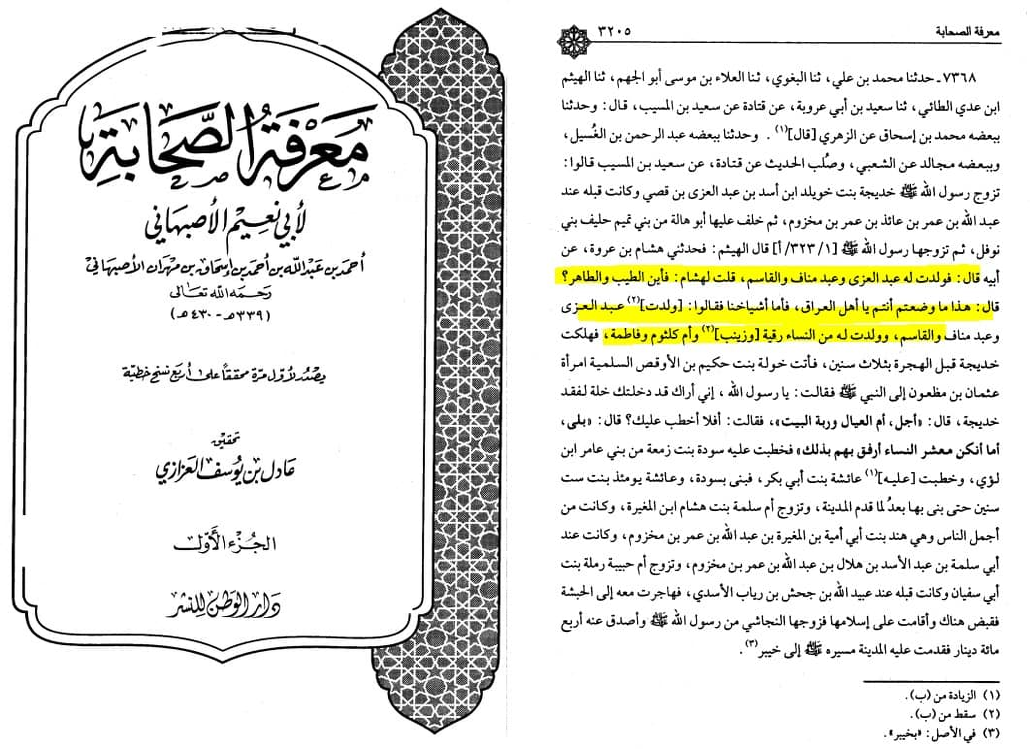 معرفة الصحابة
لأبي نعيم الأصبهاني
أحمد بن عبد الله بن أحمد بن إسحاق بن مهران الأصبهاني
رحمه الله تعالى
(٣٣٩هـ - ٤٣٠هـ)
يصدر لأول مرة محققاً على أربع نسخ خطية
تحقيق
عادل بن يوسف العزازي
الجزء الأول
دار الوطن للنشر
معرفة الصحابة
٣٢٠٥
٧٣٦٨ - حدثنا محمد بن علي، ثنا البغوي، ثنا العلاء بن موسى أبو الجهم، ثنا الهيثم
ابن عدي الطائي، ثنا سعيد بن أبي عروبة، عن قتادة عن سعيد بن المسيب، قال: وحدثنا
ببعضه محمد بن إسحاق عن الزهري [قال](١). وحدثنا ببعضه عبد الرحمن بن الغُسيل،
وببعضه مجالد عن الشعبي، وصُلب الحديث عن قتادة، عن سعيد بن المسيب قالوا:
تزوج رسول الله ﷺ خديجة بنت خويلد ابن أسد بن عبد العزى بن قصي وكانت قبله عند
عبد الله بن عمر بن عائذ بن عمر بن مخزوم، ثم خلف عليها أبو هالة من بني تميم حليف بني
نوفل، ثم تزوجها رسول الله ﷺ [١/٣٢٣/أ] قال الهيثم: فحدثني هشام بن عروة، عن
أبيه قال: فولدت له عبد العزى وعبد مناف والقاسم، قلت لهشام: فأين الطيب والطاهر؟
قال: هذا ما وضعتم أنتم يا أهل العراق، فأما أشياخنا فقالوا: [ولدت](٢) عبد العزى
وعبد مناف والقاسم، وولدت له من النساء رقية [وزينب](٢) وأم كلثوم وفاطمة، فهلكت
خديجة قبل الهجرة بثلاث سنين، فأتت خولة بنت حكيم بن الأوقص السلمية امرأة
عثمان بن مظعون إلى النبي ﷺ فقالت: يا رسول الله، إني أراك قد دخلتك خلة لفقد
خديجة، قال: «أجل، أم العيال وربة البيت»، فقالت: أفلا أخطب عليك؟ قال: «بلى،
أما أنكن معشر النساء أرفق بهم بذلك» فخطبت عليه سودة بنت زمعة من بني عامر ابن
لؤي، وخطبت [عليه](١) عائشة بنت أبي بكر، فبنى بسودة، وعائشة يومئذ بنت ست
سنين حتى بنى بها بعدُ لما قدم المدينة، وتزوج أم سلمة بنت هشام ابن المغيرة، وكانت من
أجمل الناس وهي هند بنت أبي أمية بن المغيرة بن عبد الله بن عمر بن مخزوم، وكانت عند
أبي سلمة بن عبد الأسد بن هلال بن عبد الله بن عمر بن مخزوم، وتزوج أم حبيبة رملة بنت
أبي سفيان وكانت قبله عند عبيد الله بن جحش بن رياب الأسدي، فهاجرت معه إلى الحبشة
فقبض هناك وأقامت على إسلامها فزوجها النجاشي من رسول الله ﷺ وأصدق عنه أربع
مائة دينار فقدمت عليه المدينة مسيره ﷺ إلى خيبر(٣).
(١) الزيادة من (ب).
(٢) سقط من (ب).
(٣) في الأصل: «بخيبر».